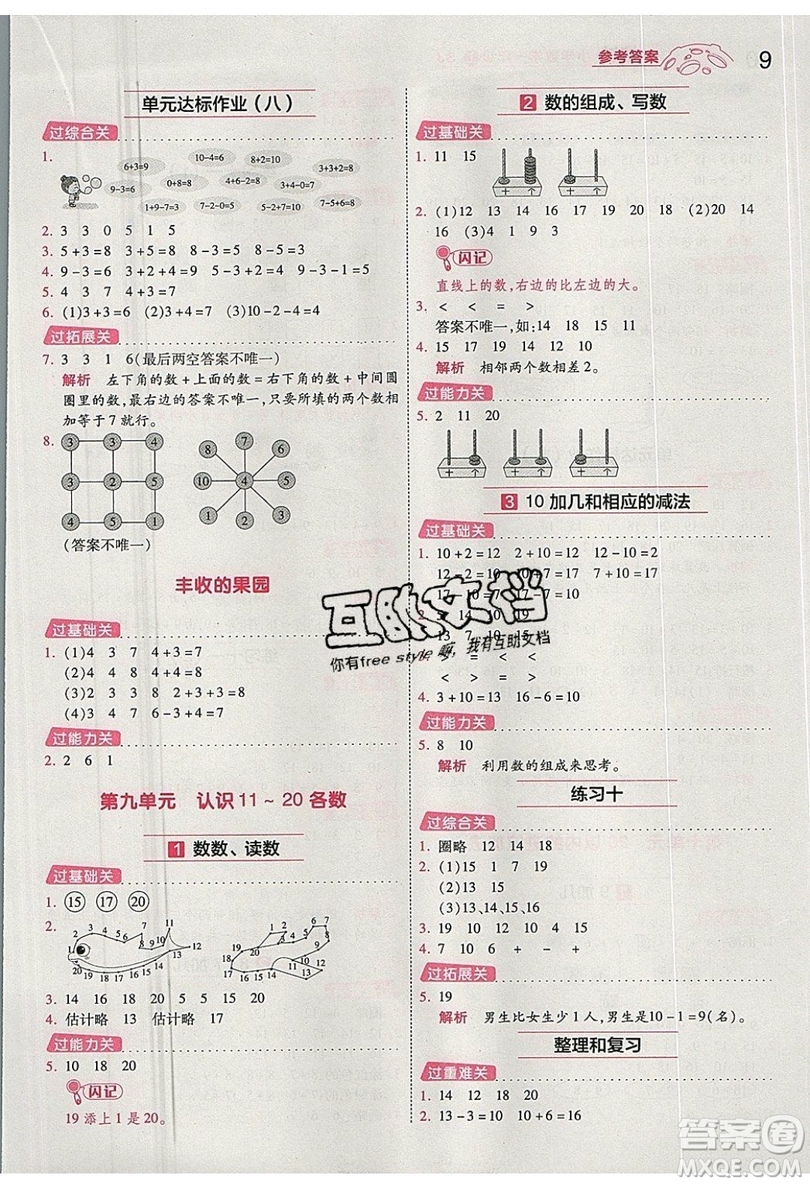 参考答案
9
单元达标作业(八)
过综合关
1.
6+3=9
10-4=6
8+2=10
9-3=6
0+8=8
2+4=6
3+4=7
1+9-7=3
9-8+2=3
7-5+6=8
2. 3 3 0 5 1 5
3. 5+3=8 3+5=8 8-3=5 8-5=3
4. 9-3=6 3+6=9 9-6=3 6+3=9
5. 4 3 7 4+3=7
6. (1)3+3=6 (2)6-3=3 (3)10-2-4=4
过拓展关
7. 3 3 1 6(最后两空答案不唯一)
解析 左下角的数+上面的数=6,右下角的数+中间圆
圈里的数,最右边的答案不唯一,只要所填的两个数相
加等于7就行。
8.
3 2 3
1 4 3
4 5 1
8 7 6
10 4 5
1 2 3
(答案不唯一)
丰收的果园
过基础关
1. (1)4 3 7 4+3=7
(2)4 4 8 4+4=8
(3)2 4 3 2+4-3=3
(4)7 3 2 6-3+4=7
过能力关
2. 2 6 1
第九单元 认识11~20各数
1 数数、读数
过基础关
1. 15 17 20
2.
3. 14 16 18 20 20 18 17 15
4. 估计略 13 估计略 17
过能力关
5. 10 18 20
闪记
19添上1是20。
2 数的组成、写数
过基础关
1. 11 15
2. (1)12 13 14 17 18 20 (2)20 14
16 (3)4 1 9 3
闪记
直线上的数,右边的比左边的大。
3. < < = >
答案不唯一,如:14 18 15 11
4. 15 17 19
解析 相邻两个数相差2。
过能力关
5. 2 11 20
3 10加几和相应的减法
过基础关
1. 10+2=12 2+10=12 12-10=2
12-2=10 10+7=17 7+10=17
17-10=7 17-7=10
13 7 10 15 10
3. > = < <
< > < >
4. 3+10=13 16-6=10
过能力关
5. 8 10
解析 利用数的组成来思考。
练习十
过综合关
1. 圈略 12 14 18
2. (1)12
(2)13
(3)13、14、15、16
3. 19 10 4 15
4. 7 10 6 + - +
过拓展关
5. 19
解析 男生比女生少1人,男生有10-1=9(名)。
整理和复习
过重难关
1. 14 12 18 20
2. 13-3=10 10+6=16
互助文档
你有free style嘛,我有互助文档
答案圈
MXQE.COM